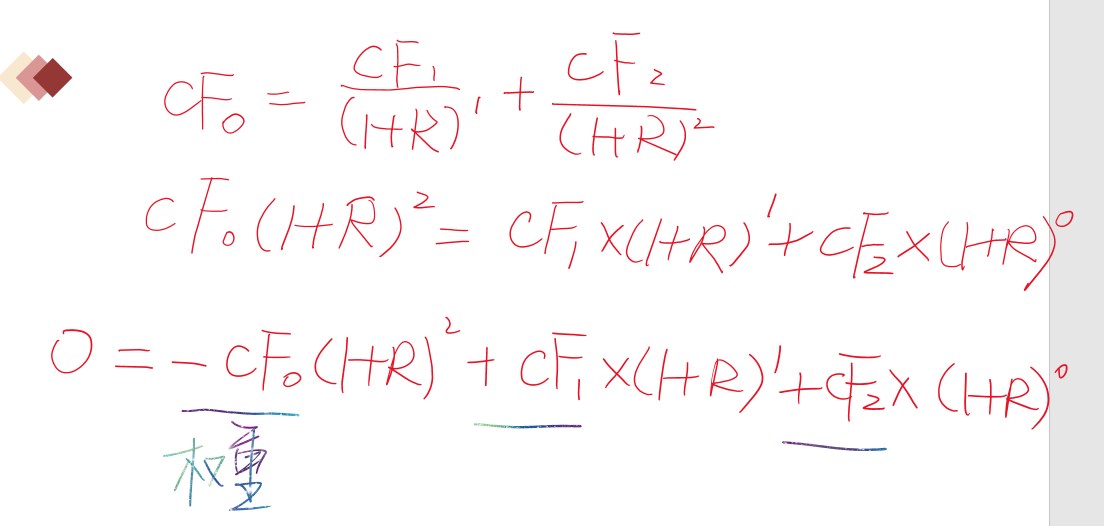 CF₀ = CF₁/(1+R)¹ + CF₂/(1+R)²
CF₀(1+R)² = CF₁×(1+R)¹+CF₂×(1+R)⁰
0 = -CF₀(1+R)² + CF₁×(1+R)¹+CF₂×(1+R)⁰
权重